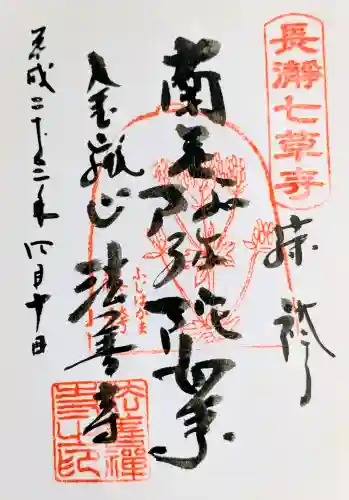 長瀞七草寺
南無阿弥陀如来
ふじばかま
金嶽山 法善寺
法善禅
寺之印
平成二十三年四月十日